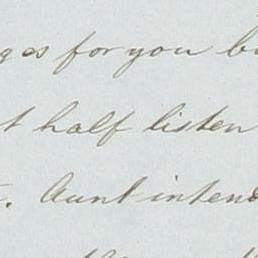 for you
half listen
Aunt intend